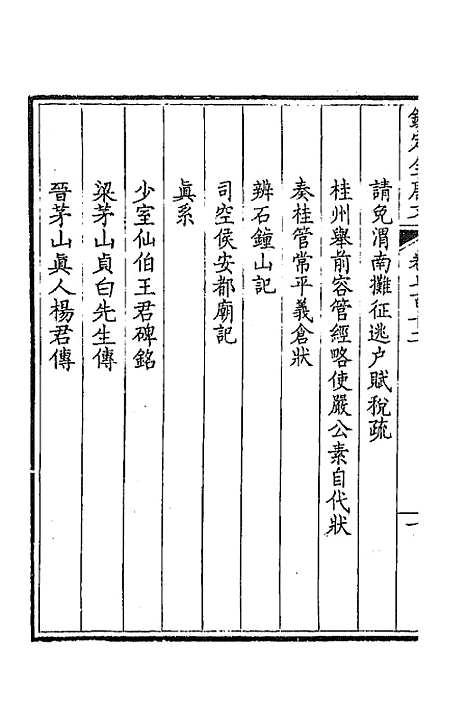 欽定全唐文 卷七百十二 一
請免渭南攤征逃户賦稅疏
桂州舉前容管經略使嚴公素自代狀
奏桂管常平義倉狀
辨石鐘山記
司空侯安都廟記
眞系
少室仙伯王君碑銘
梁茅山貞白先生傳
晉茅山眞人楊君傳